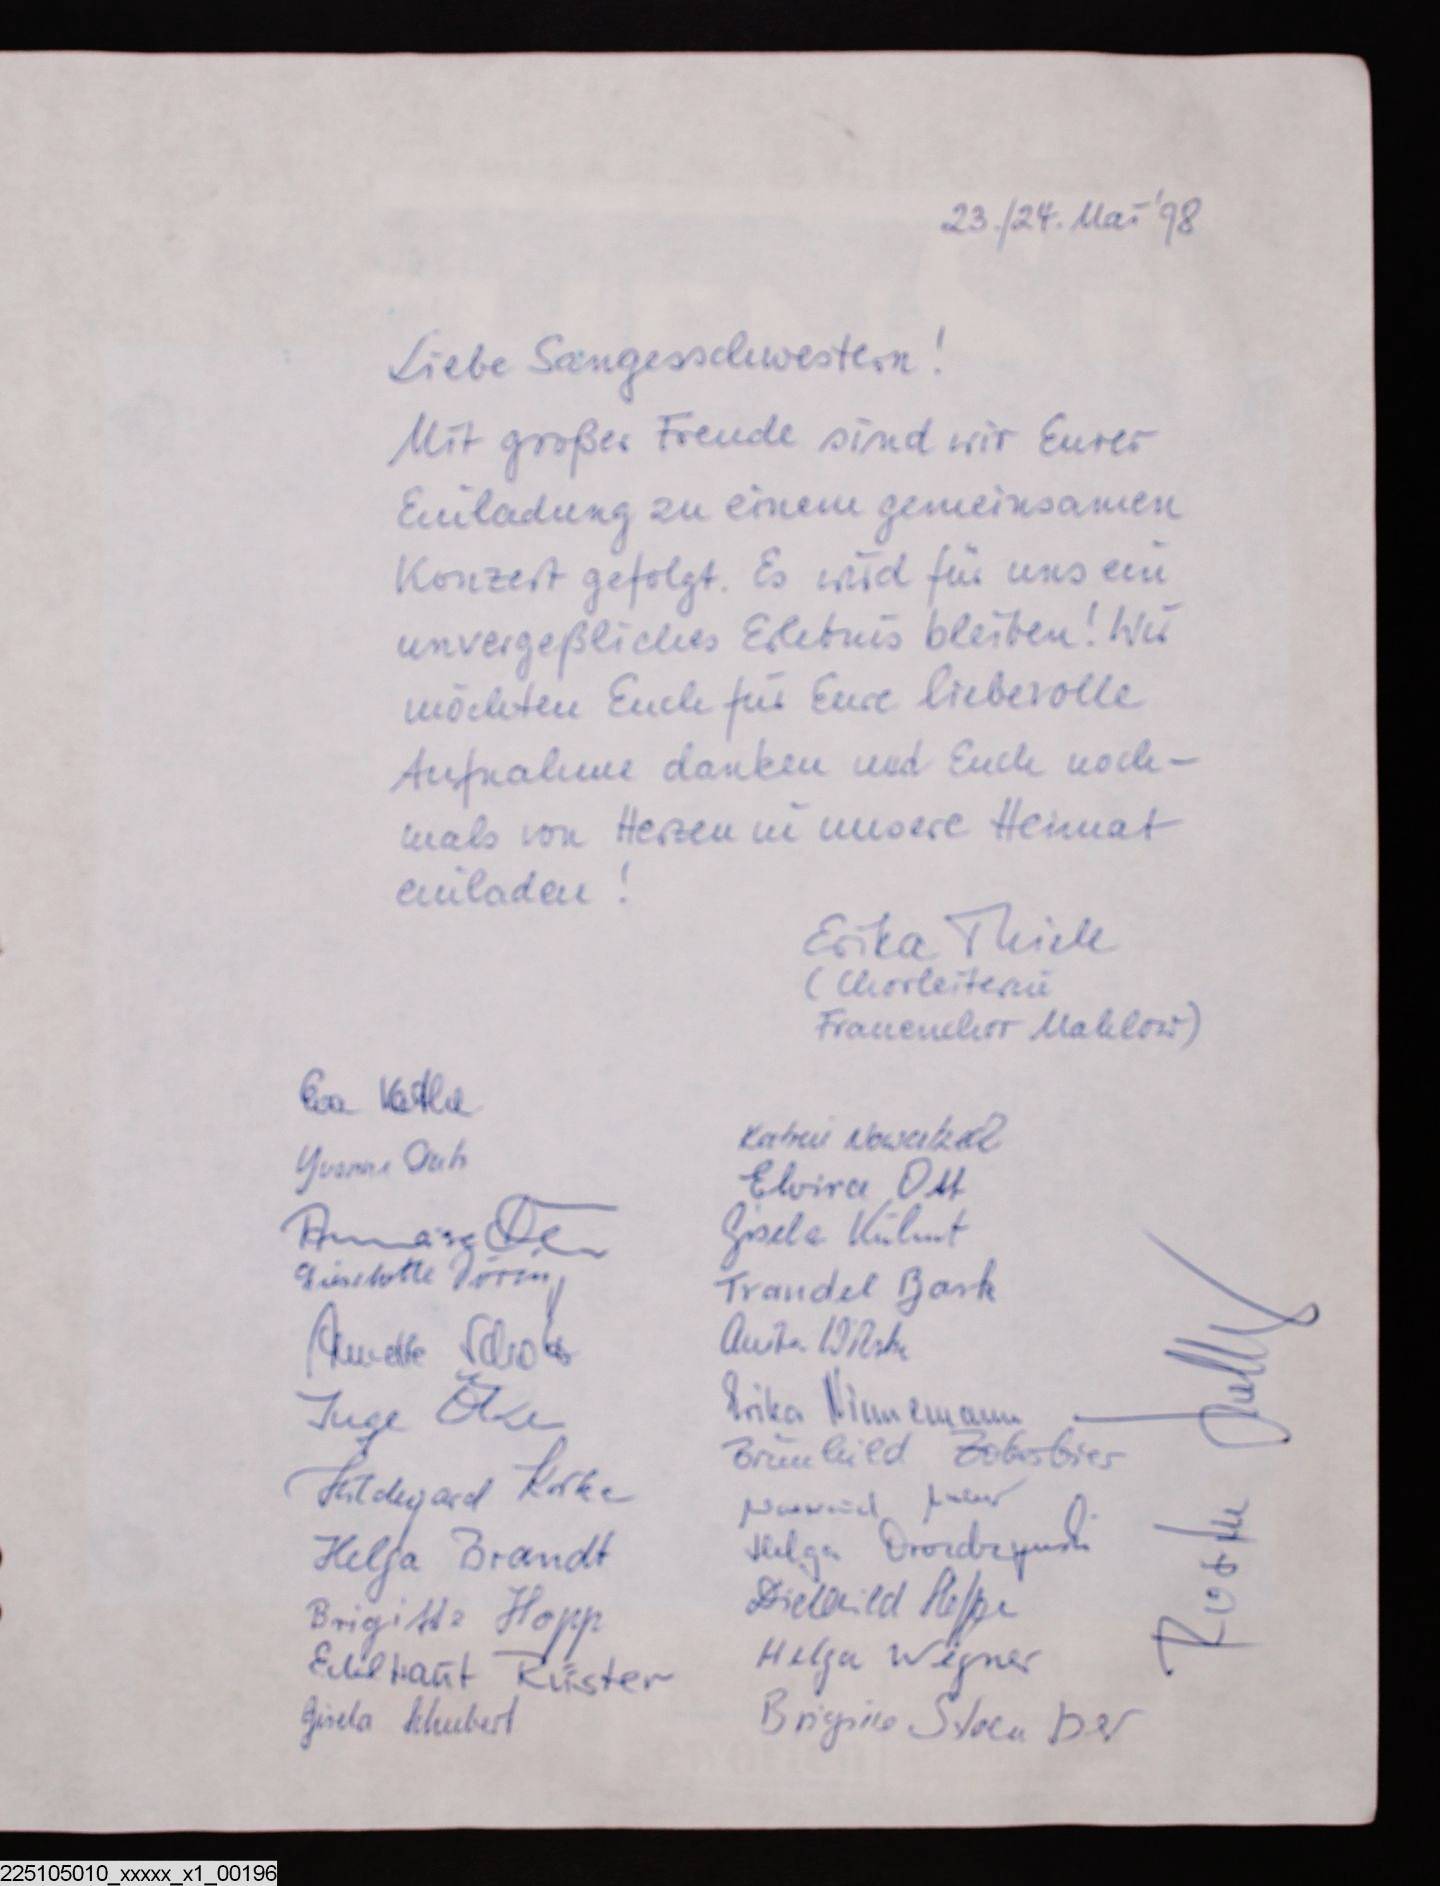 23./24. Mai '98
Liebe Sangesschwestern!
Mit großer Freude sind wir Eurer
Einladung zu einem gemeinsamen
Konzert gefolgt. Es wird für uns ein
unvergeßliches Erlebnis bleiben! Wir
möchten Euch für Eure liebevolle
Aufnahme danken und Euch noch-
mals von Herzen in unsere Heimat
einladen!
Erika Thiele
(Chorleiterin
Frauenchor Mahlow)
Eva
Yvonne
Lieselotte Döring
Annette
Inge
Hildegard
Helga Brandt
Brigitte Hopp
Edeltraut Küster
Gisela Schubert
Katrin
Elvira Ott
Gisela
Traudel Bark
Anita
Erika Ninnemann
Brünhild
Helga
Helga Wegner
225105010_xxxxx_x1_00196